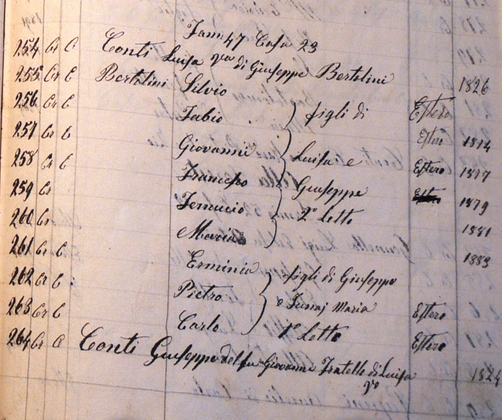 Fam 47 Casa 23
254 Cr C Conti Luisa ved di Giuseppe Bertolini 1826
255 Cr C Bertolini Silvio Estero
256 Cr C Fabio figli di Estero 1874
257 Cr C Giovanni Luisa e Estero 1877
258 Cr C Francesco Giuseppe 1879
259 Cr Ferruccio 2° Letto 1881
260 Cr Maria 1883
261 Cr C Erminia figli di Giuseppe
262 Cr C Pietro e Maria Estero
263 Cr C Carlo 1° Letto Estero
264 Cr C Conti Giuseppe del fu Giovanni Fratello di Luisa 1824